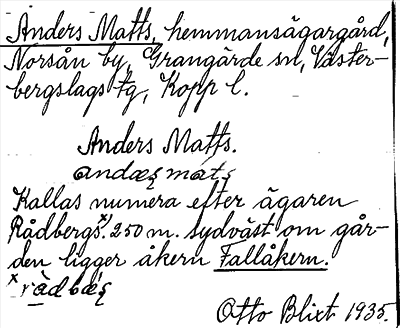 Anders Matts, hemmansägargård,
Norsån by, Grangärde sn, Väster-
bergslags tg, Kopp l.
Anders Matts.
andæʂ màtʂ
Kallas numera efter ägaren
Rådbergs.ˣ⁾ 250 m. sydväst om går-
den ligger åkern Fallåkern.
ˣ rå̀dbæʂ
Otto Blixt 1935.